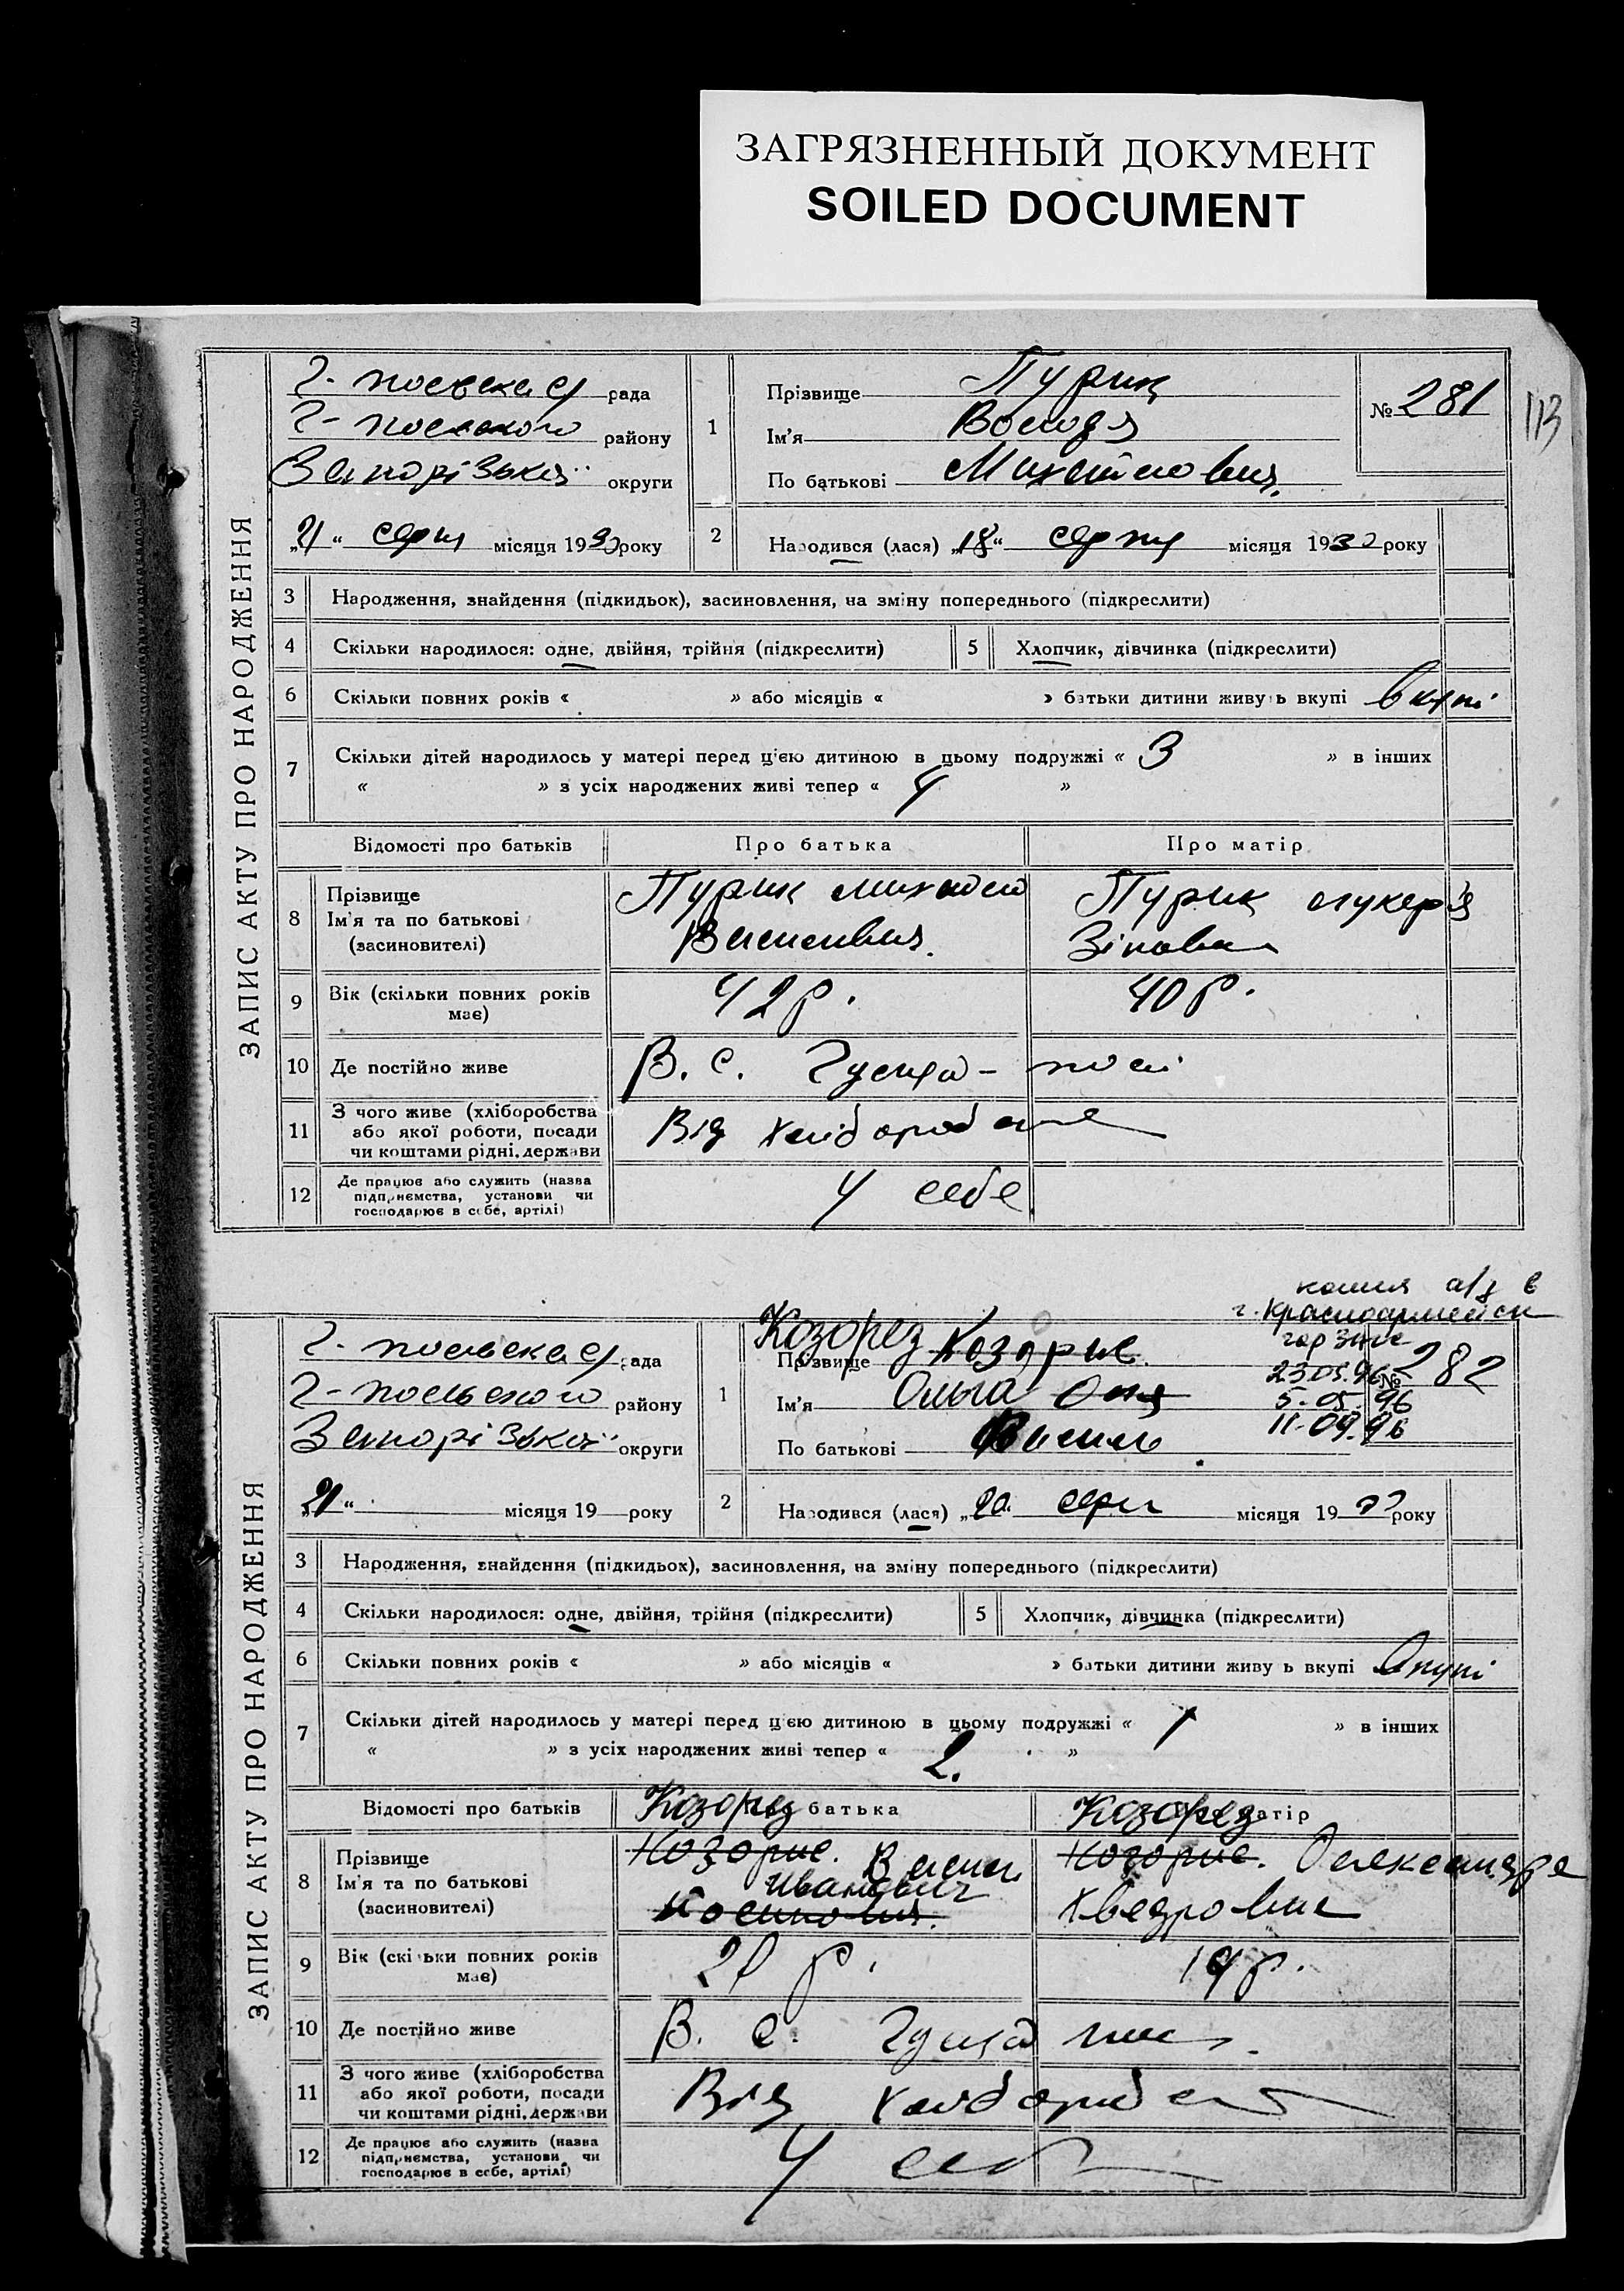 ЗАГРЯЗНЕННЫЙ ДОКУМЕНТ
SOILED DOCUMENT
113
ЗАПИС АКТУ ПРО НАРОДЖЕННЯ
рада
району
Запорізької округи
„21“ серпня місяця 1930 року
1
Прізвище Пурик
Ім'я Володя
По батькові Михайлович
№ 281
2
Народився (лася) „18“ серпня місяця 1930 року
3 Народження, знайдення (підкидьок), засиновлення, на зміну попереднього (підкреслити)
4 Скільки народилося: одне, двійня, трійня (підкреслити)
5 Хлопчик, дівчинка (підкреслити)
6 Скільки повних років « » або місяців « » батьки дитини живуть вкупі вкупі
7 Скільки дітей народилось у матері перед цією дитиною в цьому подружжі « 3 » в інших
« » з усіх народжених живі тепер « 4 »
Відомості про батьків Про батька Про матір
8 Прізвище
Ім'я та по батькові
(засиновителі)
Пурик Михайло
Пурик Лукер'я
9 Вік (скільки повних років має)
42 р.
40 р.
10 Де постійно живе
В. с. Гуляй-полі
11 З чого живе (хліборобства
або якої роботи, посади
чи коштами рідні, держави
Від хліборобства
12 Де працює або служить (назва
підприємства, установи чи
господарює в себе, артілі)
У себе
копия а/з в
г. Красноармейск
гор ЗАГС
23.05.96
5-05.96
11-09.96
ЗАПИС АКТУ ПРО НАРОДЖЕННЯ
рада
району
Запорізької округи
„21“ місяця 19 року
1
Козорез Козорис
Прізвище
Ім'я Ольга Оля
По батькові Васил
№ 282
2
Народився (лася) „20“ серп місяця 19 року
3 Народження, знайдення (підкидьок), засиновлення, на зміну попереднього (підкреслити)
4 Скільки народилося: одне, двійня, трійня (підкреслити)
5 Хлопчик, дівчинка (підкреслити)
6 Скільки повних років « » або місяців « » батьки дитини живуть вкупі вкупі
7 Скільки дітей народилось у матері перед цією дитиною в цьому подружжі « 1 » в інших
« » з усіх народжених живі тепер « 2. »
Відомості про батьків Козорез батька Козорез матір
8 Прізвище
Ім'я та по батькові
(засиновителі)
Козорис. Василь
Иванович
Козорис. Олександра
Хведровна
9 Вік (скільки повних років має)
19 р.
10 Де постійно живе
В. с. Гуляй
11 З чого живе (хліборобства
або якої роботи, посади
чи коштами рідні, держави
Від хліборобства
12 Де працює або служить (назва
підприємства, установи чи
господарює в себе, артілі)
У себе